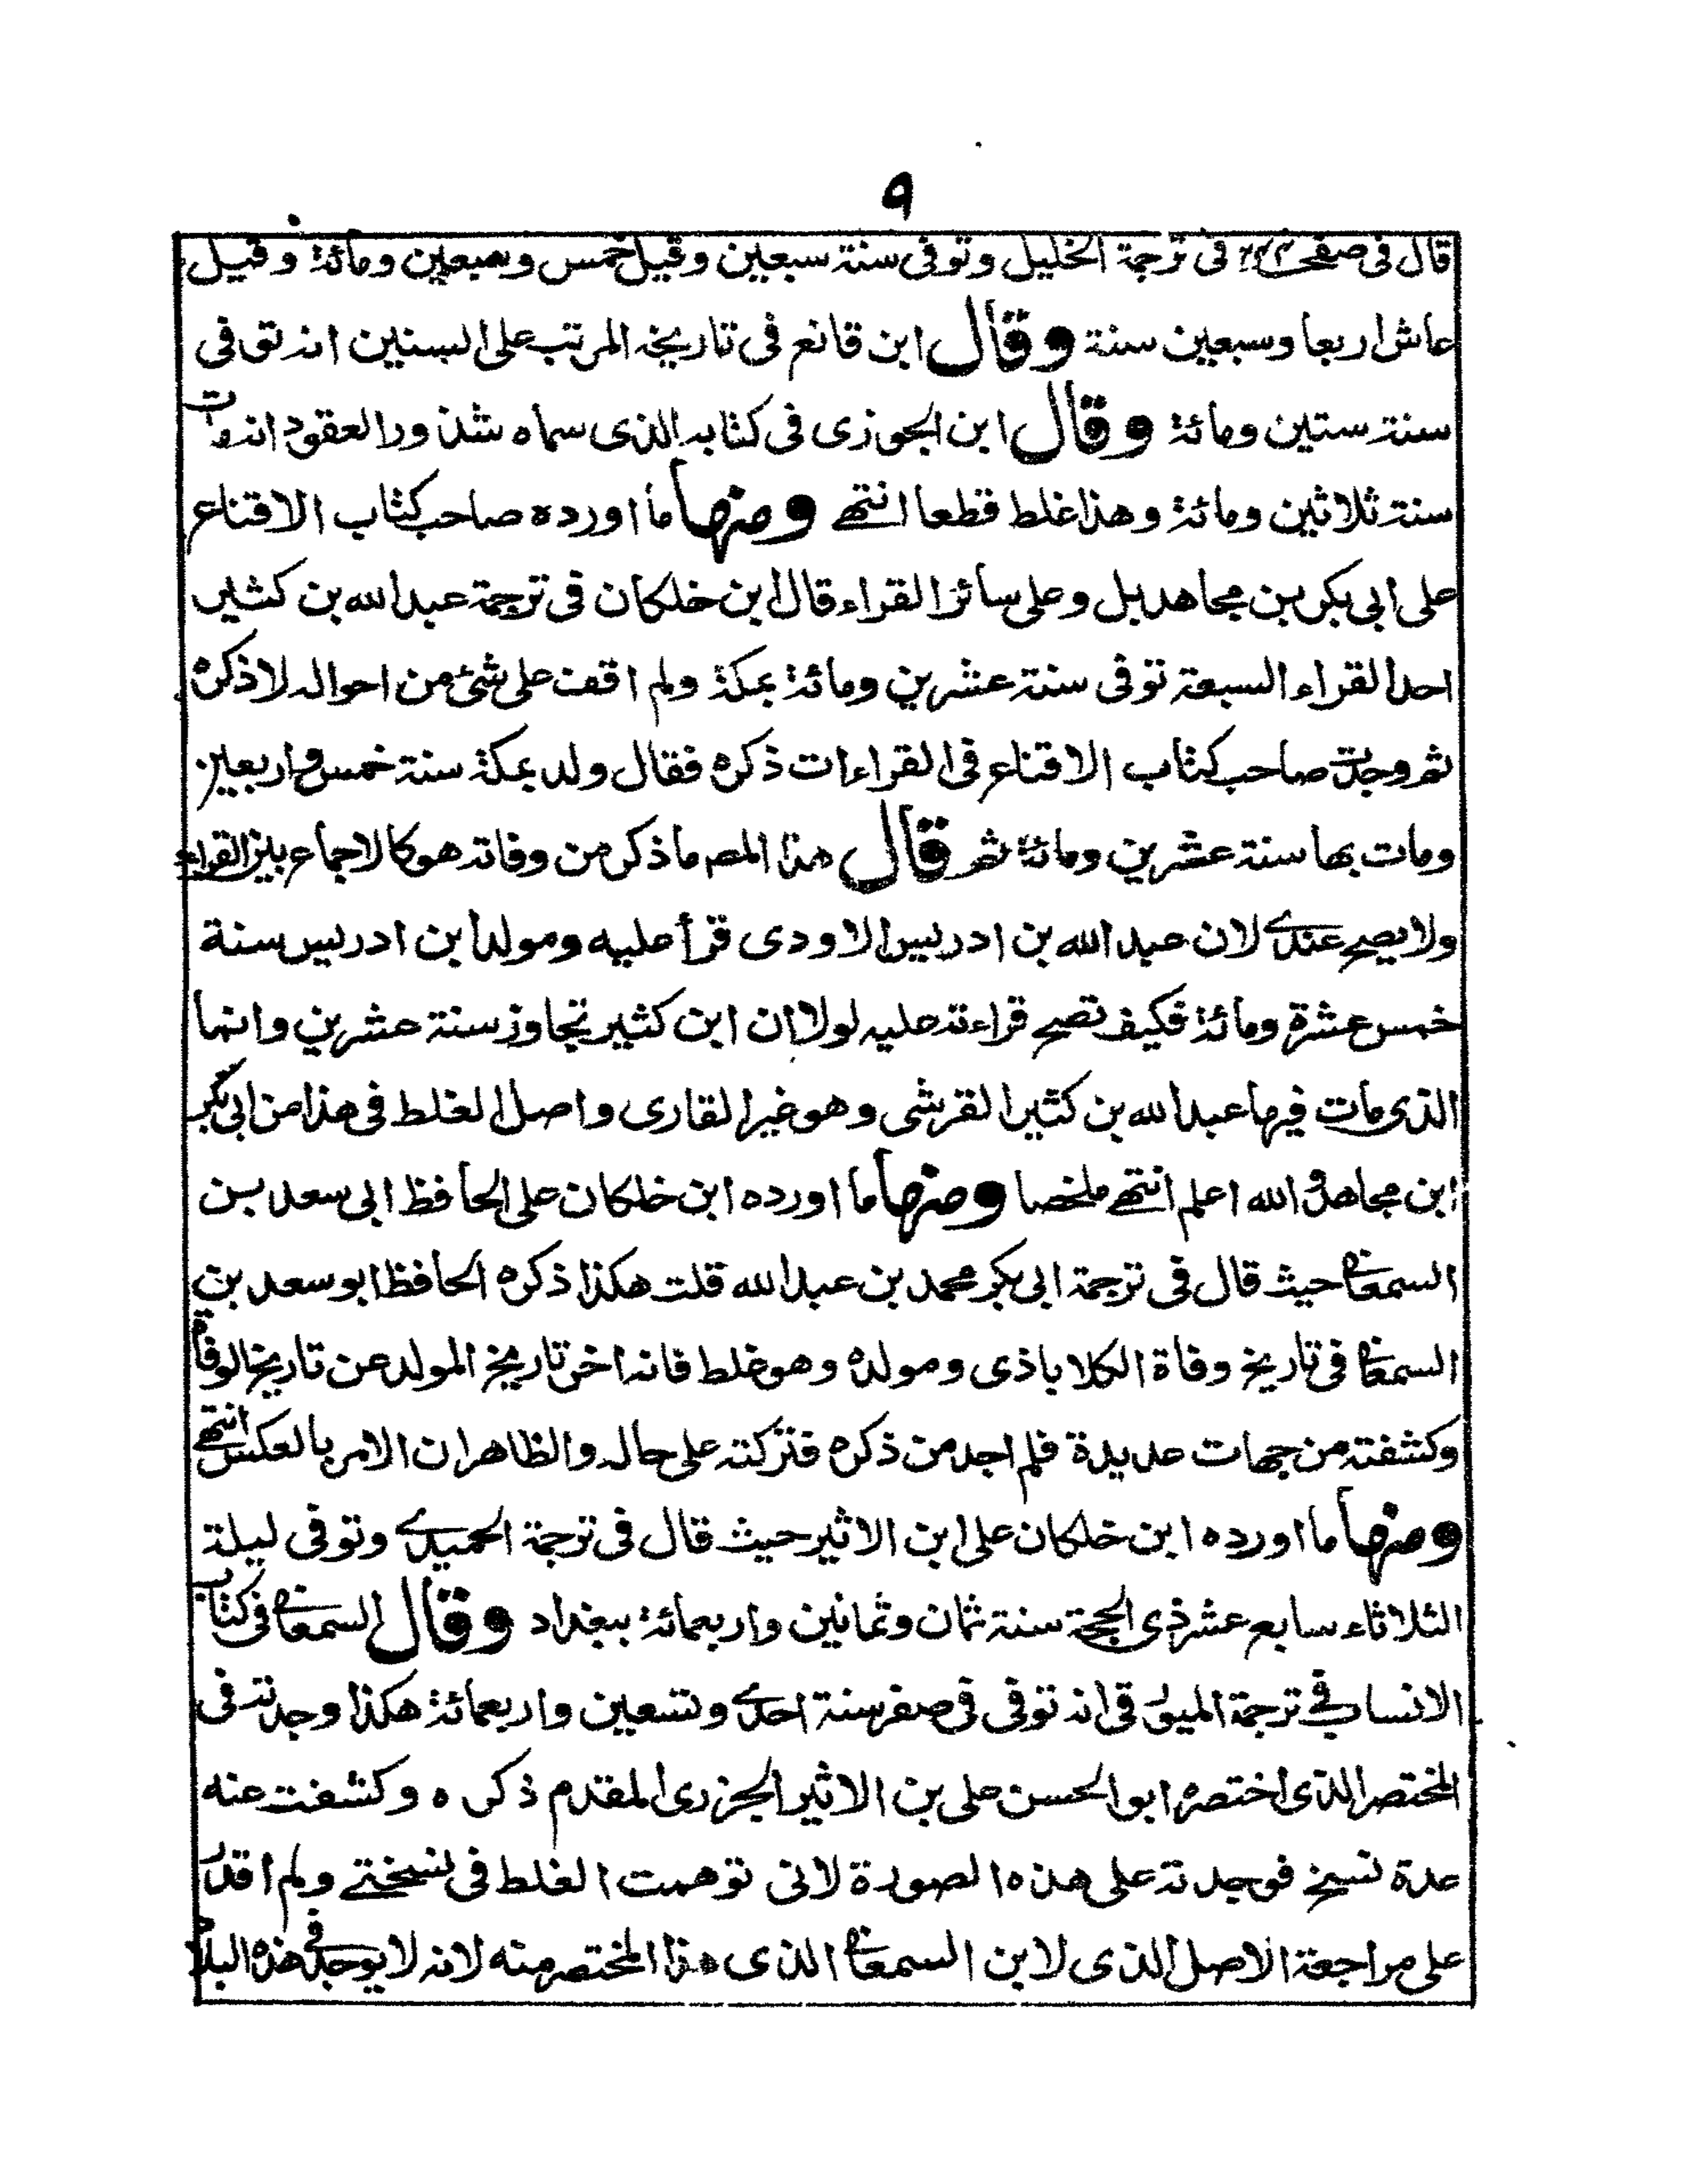 ٩
قال فى صفحة فى ترجمة الخليل وتوفى سنة سبعين وقيل خمس وسبعين ومائة وقيل
عاش اربعا وسبعين سنة وقال ابن قانع فى تاريخه المرتب على السنين انه توفى
سنة ستين ومائة وقال ابن الجوزى فى كتابه الذى سماه شذور العقود انه مات
سنة ثلاثين ومائة وهذا غلط قطعا انتهے ومنها ما اورده صاحب كتاب الاقناع
على ابى بكر بن مجاهد بل وعلى سائر القراء قال ابن خلكان فى ترجمة عبد الله بن كثير
احد القراء السبعة توفى سنة عشرين ومائة بمكة ولم اقف على شئ من احواله لاذكره
ثم وجدت صاحب كتاب الاقناع فى القراءات ذكره فقال ولد بمكة سنة خمس واربعين
ومات بها سنة عشرين ومائة ثم قال هذا المص ما ذكر من وفاته هو كالاجماع بين القراء
ولا يصح عندے لان عبد الله بن ادريس الاودى قرأ عليه ومولد ابن ادريس سنة
خمس عشرة ومائة فكيف تصح قراءته عليه لولا ان ابن كثير تجاوز سنة عشرين وانما
الذى مات فيها عبد الله بن كثير القرشى وهو غير القارى واصل الغلط فى هذا من ابى بكر
ابن مجاهد والله اعلم انتهے ملخصا ومنها ما اورده ابن خلكان على الحافظ ابى سعد بن
السمعانے حيث قال فى ترجمة ابى بكر محمد بن عبد الله قلت هكذا ذكره الحافظ ابو سعد بن
السمعانے فى تاريخ وفاة الكلاباذى ومولده وهو غلط فانه اخر تاريخ المولد عن تاريخ الوفاة
وكشفته من جهات عديدة فلم اجد من ذكره فتركته على حاله والظاهر ان الامر بالعكس انتهے
ومنها ما اورده ابن خلكان على ابن الاثير حيث قال فى ترجمة الحميدے وتوفى ليلة
الثلاثاء سابع عشر ذى الحجة سنة ثمان وثمانين واربعمائة ببغداد وقال السمعانے فى كتاب
الانساب فے ترجمة الميورقى انه توفى فى صفر سنة احدے وتسعين واربعمائة هكذا وجدته فى
المختصر الذى اختصره ابو الحسن على بن الاثير الجزرى المقدم ذكره وكشفت عنه
عدة نسخ فوجدته على هذه الصورة لانى توهمت الغلط فى نسختے ولم اقدر
على مراجعة الاصل الذى لابن السمعانے الذى هذا المختصر منه لانه لا يوجد فى هذه البلاد